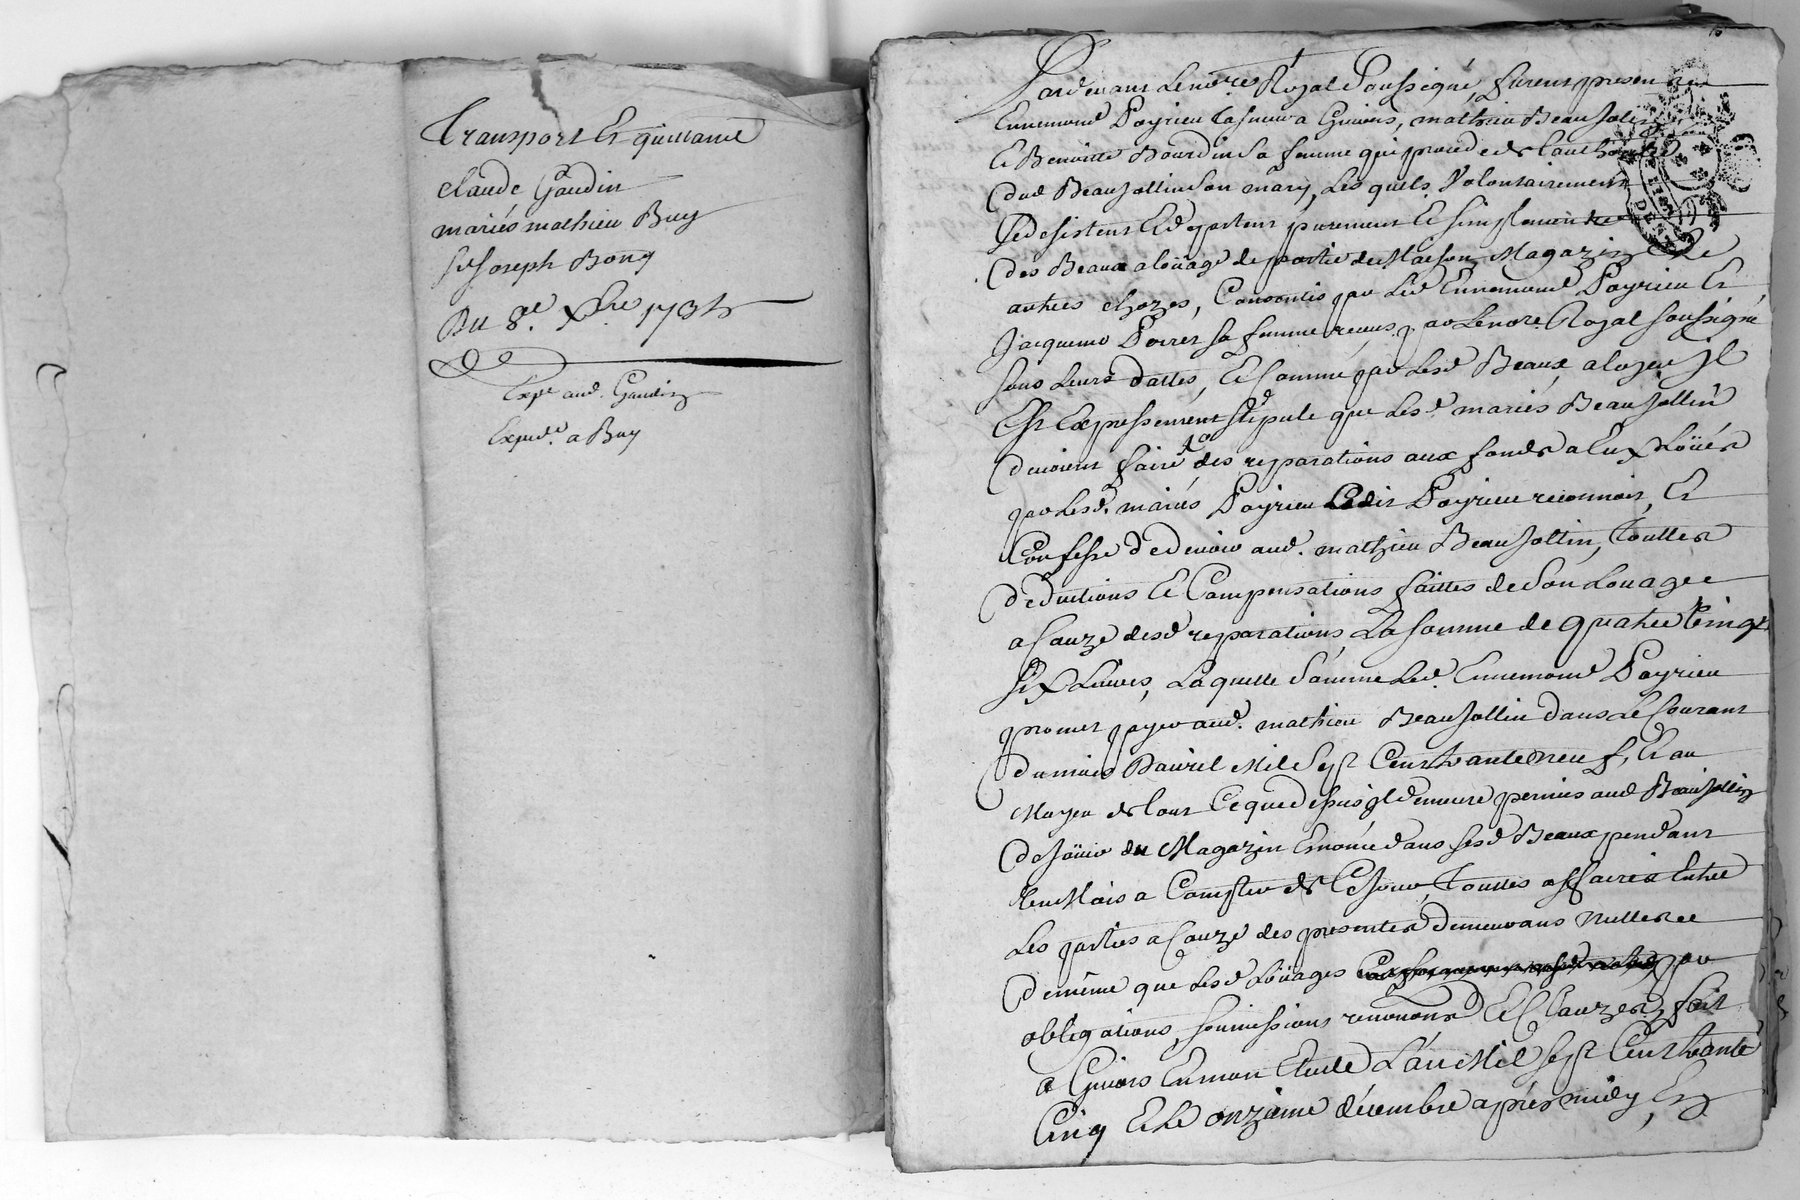 Transport Et quittance
Claude Gaudin
mariés mathieu Buy
Sr Joseph Bony
Du 8e. Xbre 1735
Expé aud. Gaudin
Expéd. a Buy
Pardevant Le no.re Royal Soussigné, furent presents
Ennemond Payrieu a Givors, mathieu Beaujollin
Et Benoitte Bourdin Sa femme qui procede de l'authorité
dud Beaujollin Son mary, Les quels Volontairement
Se desistent Et departent purement Et simplement
des Beaux a loüage de partie de Maison Magazin Et
autres chozes, Consentis par Led Ennemond Payrieu Et
Jacqueme Poirer sa femme receus par Le no.re Royal soussigné
sous Leurs dattes, Et Comme par Lesd Beaux a loyer Il
Est Expressement Stipulé que Lesd. mariés Beaujollin
devoient faire des reparations aux fonds a Eux Loüés
par Lesd. mariés Payrieu Ledit Payrieu reconnoit, Et
Confesse de devoir aud. mathieu Beaujollin, Touttes
deductions Et Compensations faittes de Son Loüage
a Cauze desd reparations, La somme de quatre Vingt
six Livres, Laquelle Somme Led. Ennemond Payrieu
promet payer aud. mathieu Beaujollin dans Le Courant
du mois D'avril Mil Sept Cent trante neuf, Et au
Moyen de tout Ce que dessus Il demeure permis aud Beaujollin
de Joüir du Magazin Enoncé dans sesd Beaux pendant
Un Mois a Compter de Ce Jour, Touttes affaires Entre
Les parties a Cauze des presentes demeurans nulles
de même que Lesd Loüages par
obligations, soumissions renonons Et Clauzes, fait
a Givors En mon Etude L'an Mil sept Cent trante
Cinq Et Le onzième décembre après midy, Et